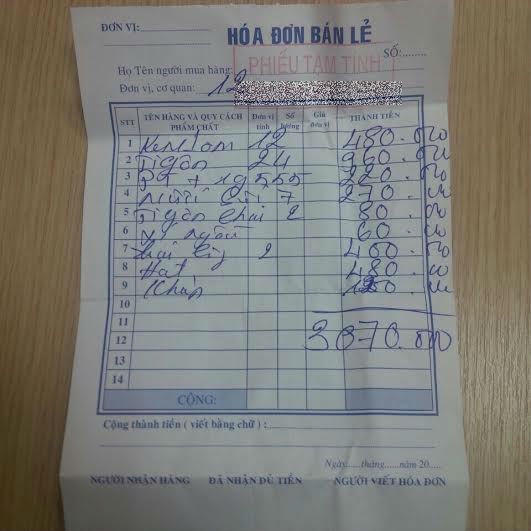 ĐƠN VỊ:
HÓA ĐƠN BÁN LẺ
PHIẾU TẠM TÍNH
SỐ:
Họ Tên người mua hàng:
Đơn vị, cơ quan: 12
STT TÊN HÀNG VÀ QUY CÁCH PHẨM CHẤT Đơn vị tính Số lượng Giá đơn vị THÀNH TIỀN
1 Ken lon 12 480.000
2 Tigôn 24 960.000
3 555 220.000
4 Nước 7 270.000
5 Tigôn chai 2 80.000
6 60.000
7 2 400.000
8 Hát 480.000
9 Khăn
10
11
12 3070.000
13
14
CỘNG:
Cộng thành tiền ( viết bằng chữ ) :
Ngày......tháng......năm 20.....
NGƯỜI NHẬN HÀNG ĐÃ NHẬN ĐỦ TIỀN NGƯỜI VIẾT HÓA ĐƠN